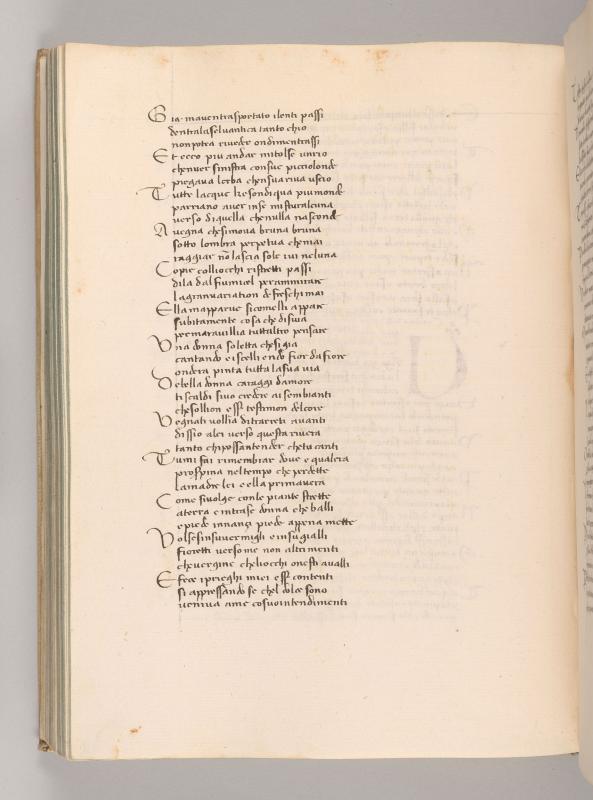 Gia maventrasportato ilenti passi
dentralaselvantica tanto chio
nonpotea riveder ondimentrassi
Et ecco piu andar mitolse unrio
chenver sinistra consue picciolonde
piegava lerba chensuariva uscio
Tutte lacque kresondiqua piumonde
parriano aver inse misturalcuna
verso diquella chenulla nasconde
Avegna chesimova bruna bruna
sotto lombra perpetua chemai
raggiar nō lascia sole ivi neluna
Copie colliocchi ristretti passi
dila dalfiumicel perammirare
lagranvariation de freschi mai
Ella mapparve sicomelli appare
subitamente cosa che disvia
permaravillia tuttaltro pensare
Una donna soletta chesi gia
cantando eiscelliendo fior dafiore
ondera pinta tutta lasua via
Debella donna caraggi damore
tiscaldi sivo credere aisembianti
chesollion esser testimon delcore
Vegnati vollia ditrarreti avanti
dissio alei verso questa rivera
tanto chipossantender chetu canti
Tumi fai rimembrar dove e qualera
prospina neltempo che perdette
lamadre lei e ella primavera
Come sivolge conle piante strette
aterra e intrase donna che balli
epiede innanzi piede appena mette
Volsesinsuvermigli e insugialli
fioretti versome non altrimenti
chevergine cheliocchi onesti avalli
E fece iprieghi miei esser contenti
si appressando se chel dolce sono
veniva ame cosuointendimenti